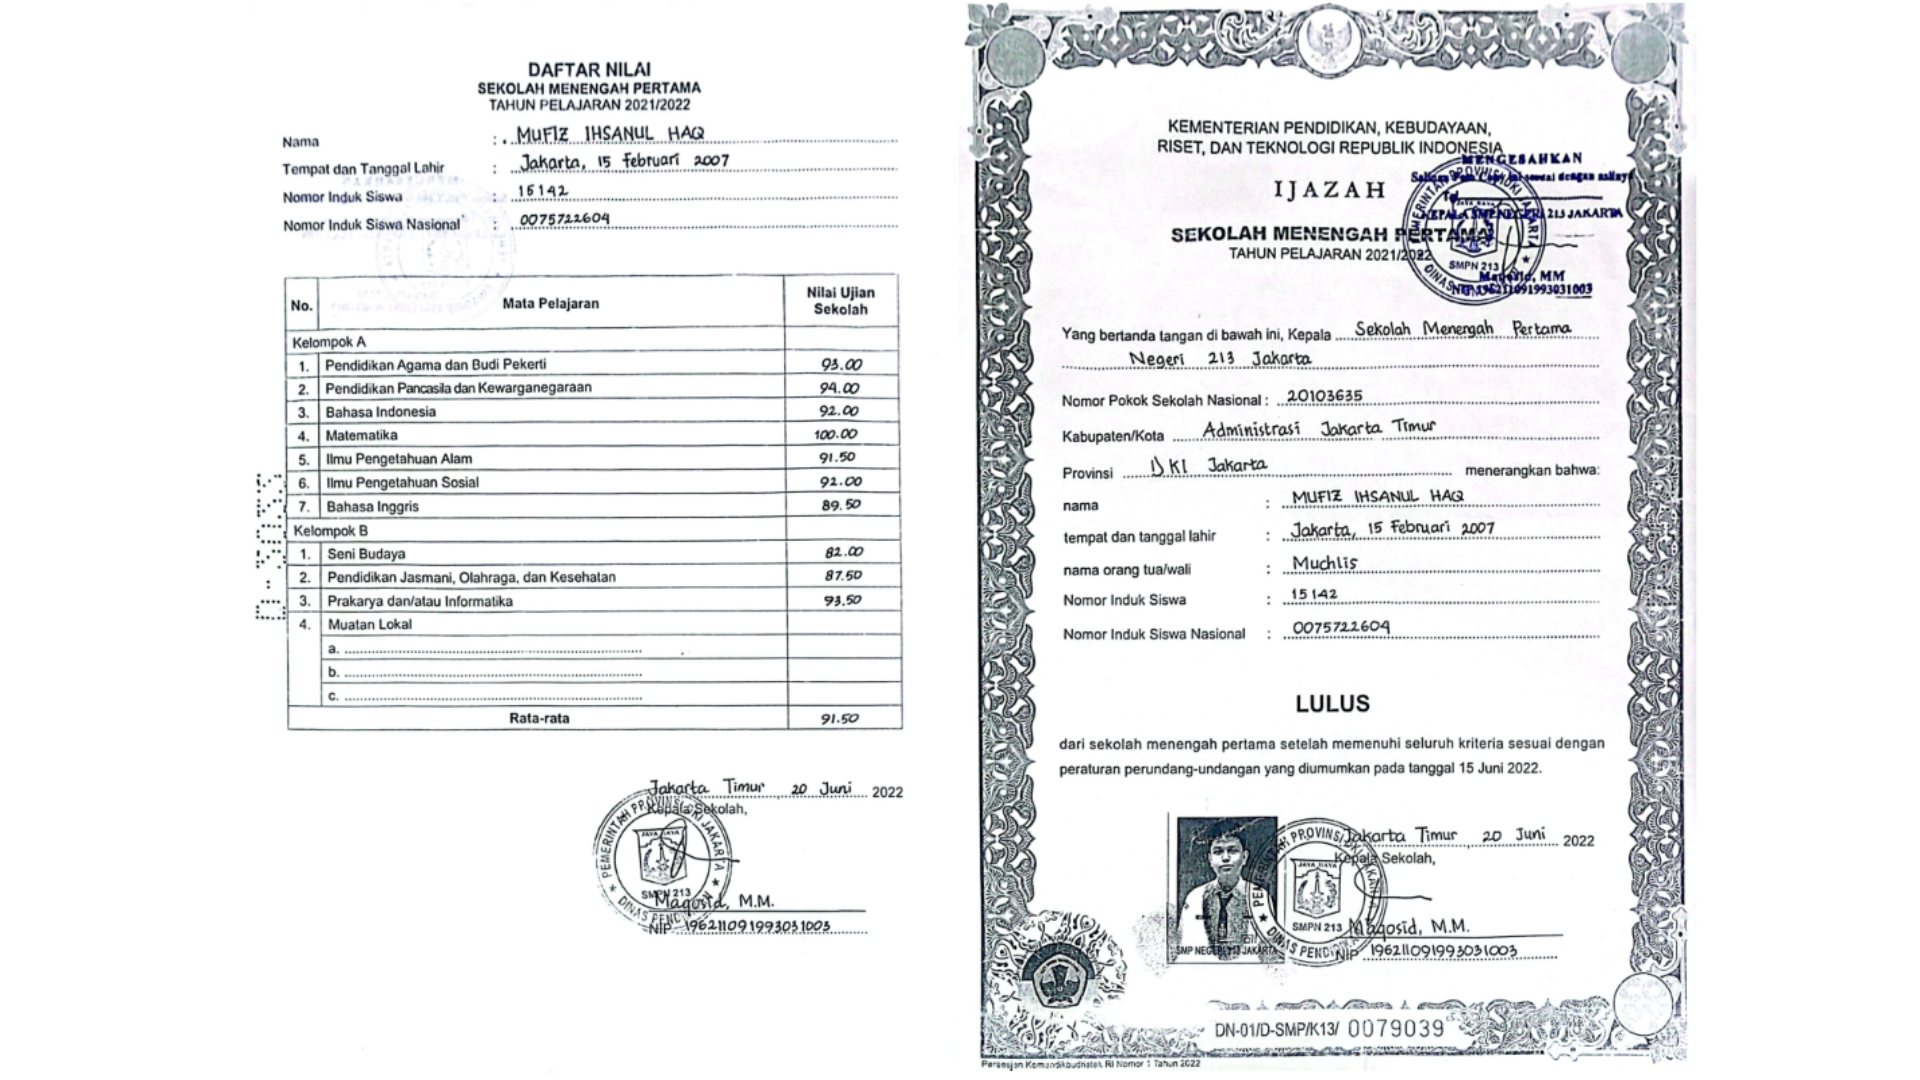 DAFTAR NILAI
SEKOLAH MENENGAH PERTAMA
TAHUN PELAJARAN 2021/2022
Nama : MUFIZ IHSANUL HAQ
Tempat dan Tanggal Lahir : Jakarta, 15 Februari 2007
Nomor Induk Siswa : 15142
Nomor Induk Siswa Nasional : 0075722604
No. Mata Pelajaran Nilai Ujian Sekolah
Kelompok A
1. Pendidikan Agama dan Budi Pekerti 93.00
2. Pendidikan Pancasila dan Kewarganegaraan 94.00
3. Bahasa Indonesia 92.00
4. Matematika 100.00
5. Ilmu Pengetahuan Alam 91.50
6. Ilmu Pengetahuan Sosial 92.00
7. Bahasa Inggris 89.50
Kelompok B
1. Seni Budaya 82.00
2. Pendidikan Jasmani, Olahraga, dan Kesehatan 87.50
3. Prakarya dan/atau Informatika 93,50
4. Muatan Lokal
a.
b.
c.
Rata-rata 91.50
Jakarta Timur, 20 Juni 2022
Kepala Sekolah,
PEMERINTAH PROVINSI DKI JAKARTA
JAYA RAYA
SMPN 213
DINAS PENDIDIKAN
Maqosid, M.M.
NIP 196211091993031003
KEMENTERIAN PENDIDIKAN, KEBUDAYAAN,
RISET, DAN TEKNOLOGI REPUBLIK INDONESIA
MENGESAHKAN
IJAZAH
KEPALA SMP NEGERI 213 JAKARTA
SEKOLAH MENENGAH PERTAMA
TAHUN PELAJARAN 2021/2022
SMPN 213
Maqosid, MM
NIP 196211091993031003
Yang bertanda tangan di bawah ini, Kepala Sekolah Menengah Pertama
Negeri 213 Jakarta
Nomor Pokok Sekolah Nasional : 20103635
Kabupaten/Kota Administrasi Jakarta Timur
Provinsi DKI Jakarta menerangkan bahwa:
nama : MUFIZ IHSANUL HAQ
tempat dan tanggal lahir : Jakarta, 15 Februari 2007
nama orang tua/wali : Muchlis
Nomor Induk Siswa : 15142
Nomor Induk Siswa Nasional : 0075722604
LULUS
dari sekolah menengah pertama setelah memenuhi seluruh kriteria sesuai dengan
peraturan perundang-undangan yang diumumkan pada tanggal 15 Juni 2022.
Jakarta Timur, 20 Juni 2022
Kepala Sekolah,
PEMERINTAH PROVINSI DKI JAKARTA
JAYA RAYA
SMPN 213
DINAS PENDIDIKAN
Maqosid, M.M.
NIP 196211091993031003
SMP NEGERI 213 JAKARTA
DN-01/D-SMP/K13/ 0079039
Persesjen Kemendikbudristek RI Nomor 1 Tahun 2022